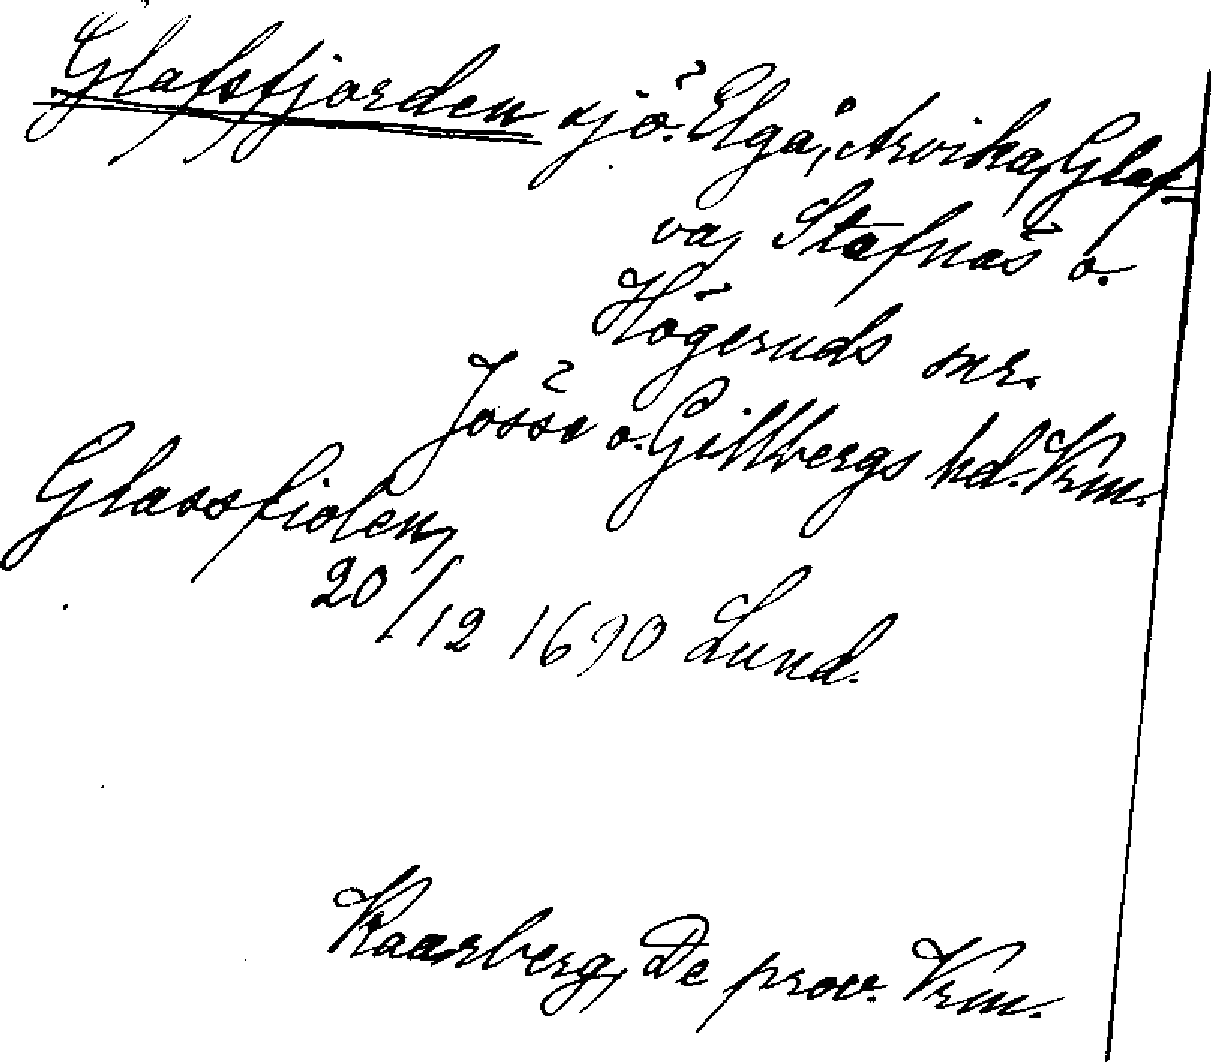 Glafsfjorden sjö. Elgå, Arvika, Glaf-
va, Stafnäs o.
Högeruds snr.
Jösse o. Gillbergs hd. Vrm.
Glassfiolen,
20/12 1690 Lund.
De prov. Vrm.